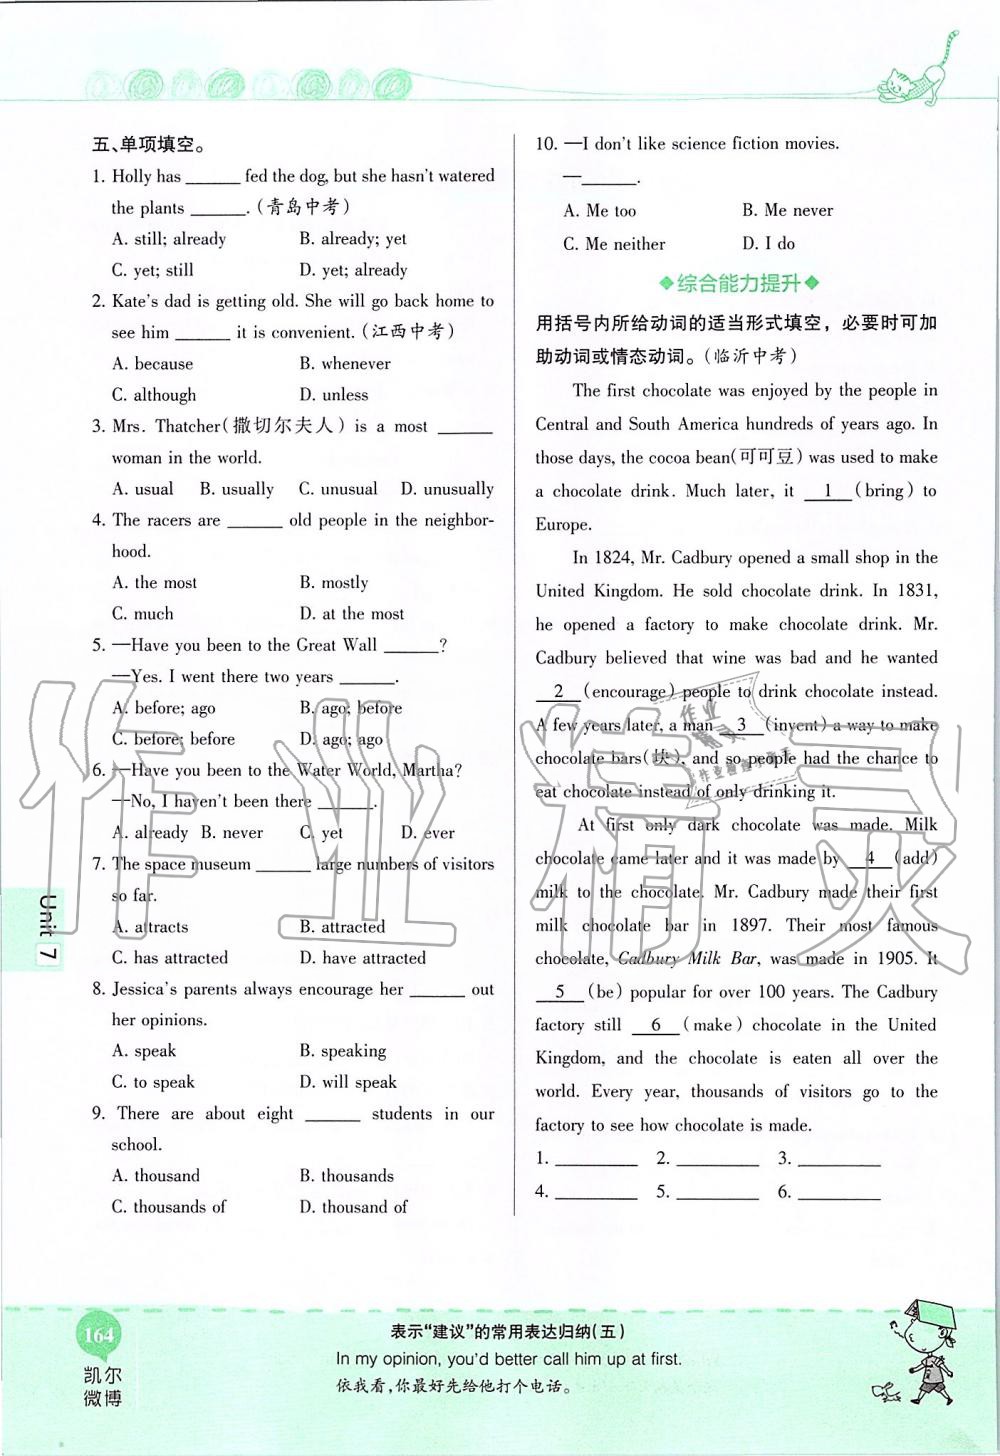 五、单项填空。
1. Holly has ______ fed the dog, but she hasn't watered
the plants ______. (青岛中考)
A. still; already B. already; yet
C. yet; still D. yet; already
2. Kate's dad is getting old. She will go back home to
see him ______ it is convenient. (江西中考)
A. because B. whenever
C. although D. unless
3. Mrs. Thatcher(撒切尔夫人) is a most ______
woman in the world.
A. usual B. usually C. unusual D. unusually
4. The racers are ______ old people in the neighbor-
hood.
A. the most B. mostly
C. much D. at the most
5. —Have you been to the Great Wall ______?
—Yes. I went there two years ______.
A. before; ago B. ago; before
C. before; before D. ago; ago
6. —Have you been to the Water World, Martha?
—No, I haven't been there ______.
A. already B. never C. yet D. ever
7. The space museum ______ large numbers of visitors
so far.
A. attracts B. attracted
C. has attracted D. have attracted
8. Jessica's parents always encourage her ______ out
her opinions.
A. speak B. speaking
C. to speak D. will speak
9. There are about eight ______ students in our
school.
A. thousand B. thousands
C. thousands of D. thousand of
10. —I don't like science fiction movies.
—______.
A. Me too B. Me never
C. Me neither D. I do
综合能力提升
用括号内所给动词的适当形式填空，必要时可加
助动词或情态动词。(临沂中考)
The first chocolate was enjoyed by the people in
Central and South America hundreds of years ago. In
those days, the cocoa bean(可可豆) was used to make
a chocolate drink. Much later, it 1 (bring) to
Europe.
In 1824, Mr. Cadbury opened a small shop in the
United Kingdom. He sold chocolate drink. In 1831,
he opened a factory to make chocolate drink. Mr.
Cadbury believed that wine was bad and he wanted
2 (encourage) people to drink chocolate instead.
A few years later, a man 3 (invent) a way to make
chocolate bars(块), and so people had the chance to
eat chocolate instead of only drinking it.
At first only dark chocolate was made. Milk
chocolate came later and it was made by 4 (add)
milk to the chocolate. Mr. Cadbury made their first
milk chocolate bar in 1897. Their most famous
chocolate, Cadbury Milk Bar, was made in 1905. It
5 (be) popular for over 100 years. The Cadbury
factory still 6 (make) chocolate in the United
Kingdom, and the chocolate is eaten all over the
world. Every year, thousands of visitors go to the
factory to see how chocolate is made.
1. ______ 2. ______ 3. ______
4. ______ 5. ______ 6. ______
Unit 7
164
凯尔
微博
表示“建议”的常用表达归纳(五)
In my opinion, you'd better call him up at first.
依我看,你最好先给他打个电话。
作业精灵